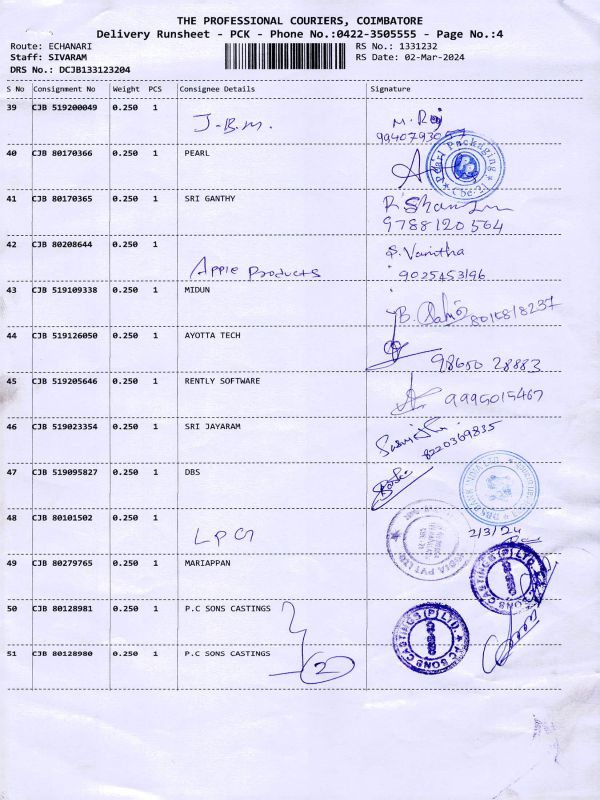 THE PROFESSIONAL COURIERS, COIMBATORE
Delivery Runsheet - PCK - Phone No.:0422-3505555 - Page No.:4
Route: ECHANARI
Staff: SIVARAM
DRS No.: DCJB133123204
RS No.: 1331232
RS Date: 02-Mar-2024
S No Consignment No Weight PCS Consignee Details Signature
39 CJB 519200049 0.250 1
J-B.M.
M. Raj
40 CJB 80170366 0.250 1 PEARL
Pearl Packaging
41 CJB 80170365 0.250 1 SRI GANTHY
9788120564
42 CJB 80208644 0.250 1
Apple Products
S. Vanitha
9025453196
43 CJB 519109338 0.250 1 MIDUN
8015818237
44 CJB 519126050 0.250 1 AYOTTA TECH
98650 28883
45 CJB 519205646 0.250 1 RENTLY SOFTWARE
9995015467
46 CJB 519023354 0.250 1 SRI JAYARAM
8220369835
47 CJB 519095827 0.250 1 DBS
48 CJB 80101502 0.250 1
LPG
2/3/24
49 CJB 80279765 0.250 1 MARIAPPAN
50 CJB 80128981 0.250 1 P.C SONS CASTINGS
51 CJB 80128980 0.250 1 P.C SONS CASTINGS
2
PC SONS CASTINGS (P) LTD.